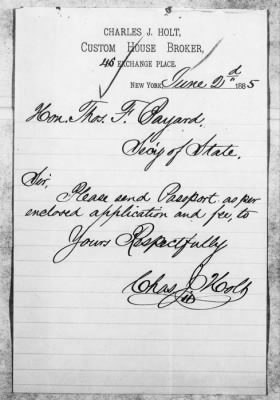 CHARLES J. HOLT,
CUSTOM HOUSE BROKER,
46 EXCHANGE PLACE.
NEW YORK, June 2d 1885
Hon. Thos. F. Bayard.
Sec'y of State.
Sir,
Please send Passport as per
enclosed application and fee, to
Yours Respectfully
Chas J Holt